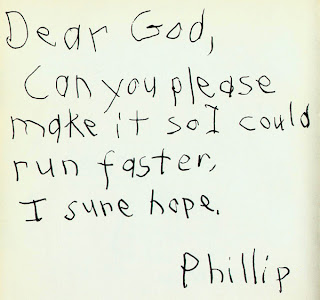 Dear God,
Can you please
make it so I could
run faster,
I sure hope.
Phillip